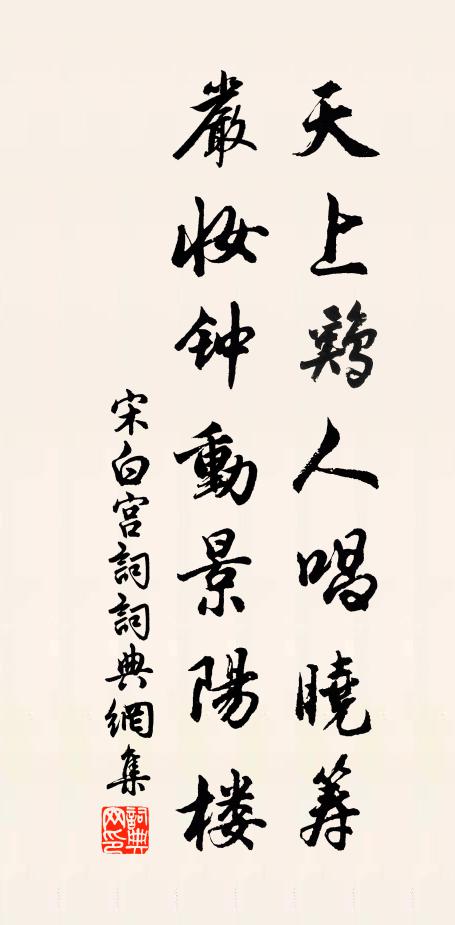 天上鷄人唱曉筹
嚴妆钟動景陽楼
宋白宫詞詞典網集
詞典网印